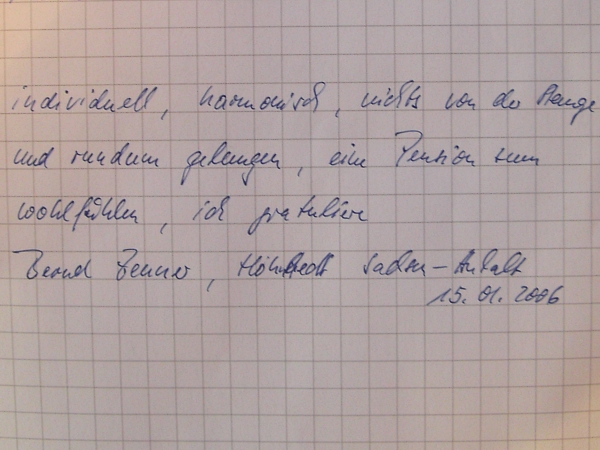 individuell, harmonisch, nichts von der Stange
und rundum gelungen, eine Pension zum
wohlfühlen, ich gratuliere
Bernd Benner, Höhnstedt Sachsen-Anhalt
15.01.2006